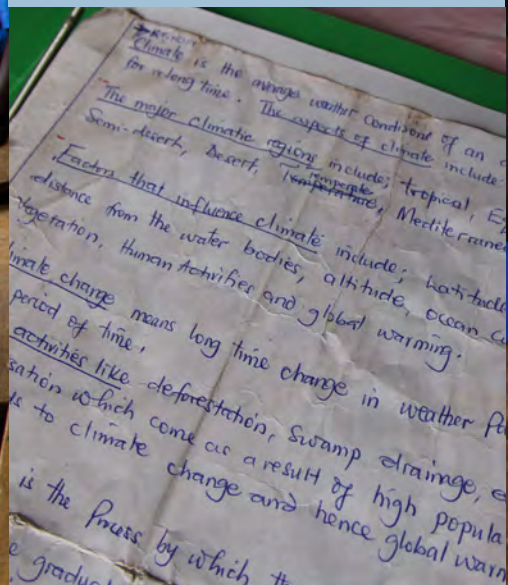 Climate is the average weather conditions of an a
for a long time. The aspects of climate include
The major climatic regions include; tropical, E
Semi-desert, Desert, temperate, Mediterrane
Factors that influence climate include; Latitude
distance from the water bodies, altitude, ocean c
Vegetation, Human Activities and global warming.
imate change means long time change in weather Pa
period of time.
activities like deforestation, swamp drainage, e
sation which come as a result of high popula
s to climate change and hence global warm
is the Process by which th
e gradua